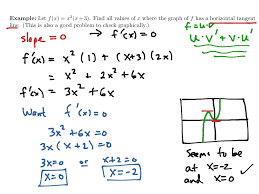 Example: Let f(x) = x²(x+3). Find all values of x where the graph of f has a horizontal tangent
line. (This is also a good problem to check graphically.)
f = u·v
slope = 0 → f'(x) = 0
u·v' + v·u'
f'(x) = x²(1) + (x+3)(2x)
= x² + 2x² + 6x
f'(x) = 3x² + 6x
Want f'(x) = 0
3x² + 6x = 0
3x(x+2) = 0
3x = 0 or x+2 = 0
x = 0 x = -2
Seems to be
at x = -2
and x = 0